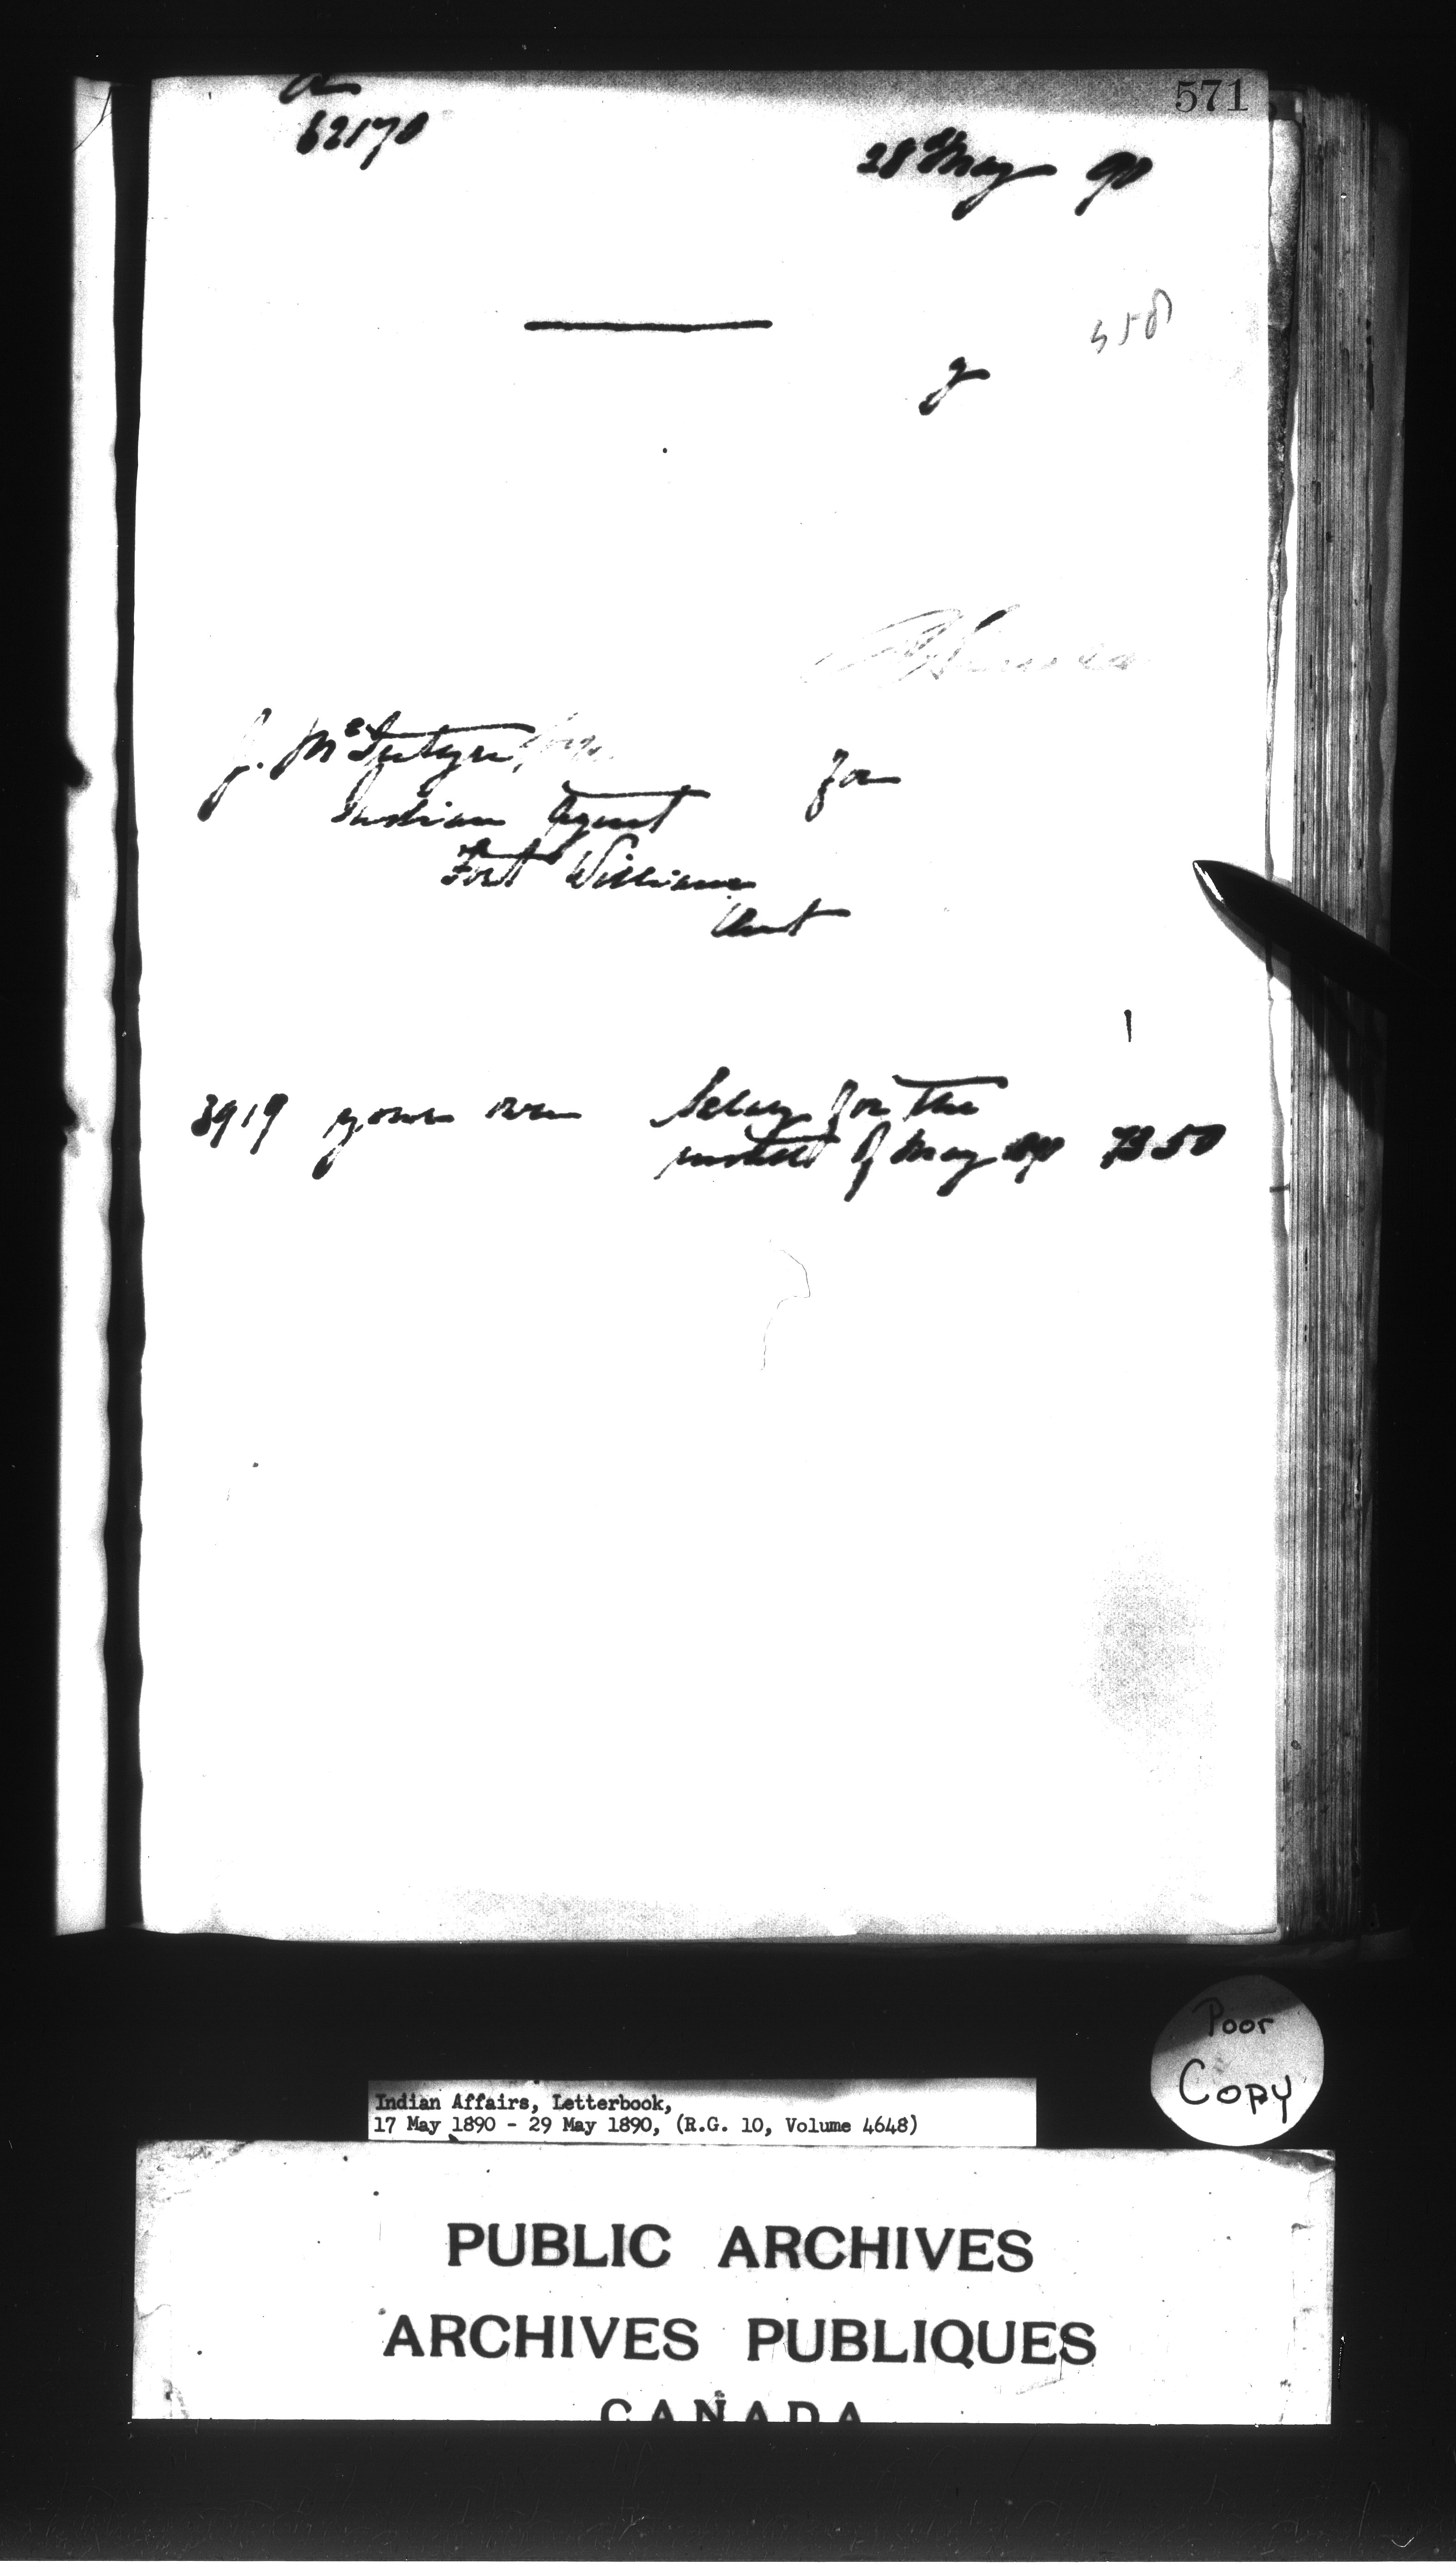 571
a
62170
28th May 90
558
g
J. McIntyre, Esq.
for
Indian Agent
Fort William
Ont
3919 your own Salary for the
month of May 90 73 50
Poor
Copy
Indian Affairs, Letterbook,
17 May 1890 - 29 May 1890, (R.G. 10, Volume 4648)
PUBLIC ARCHIVES
ARCHIVES PUBLIQUES
CANADA